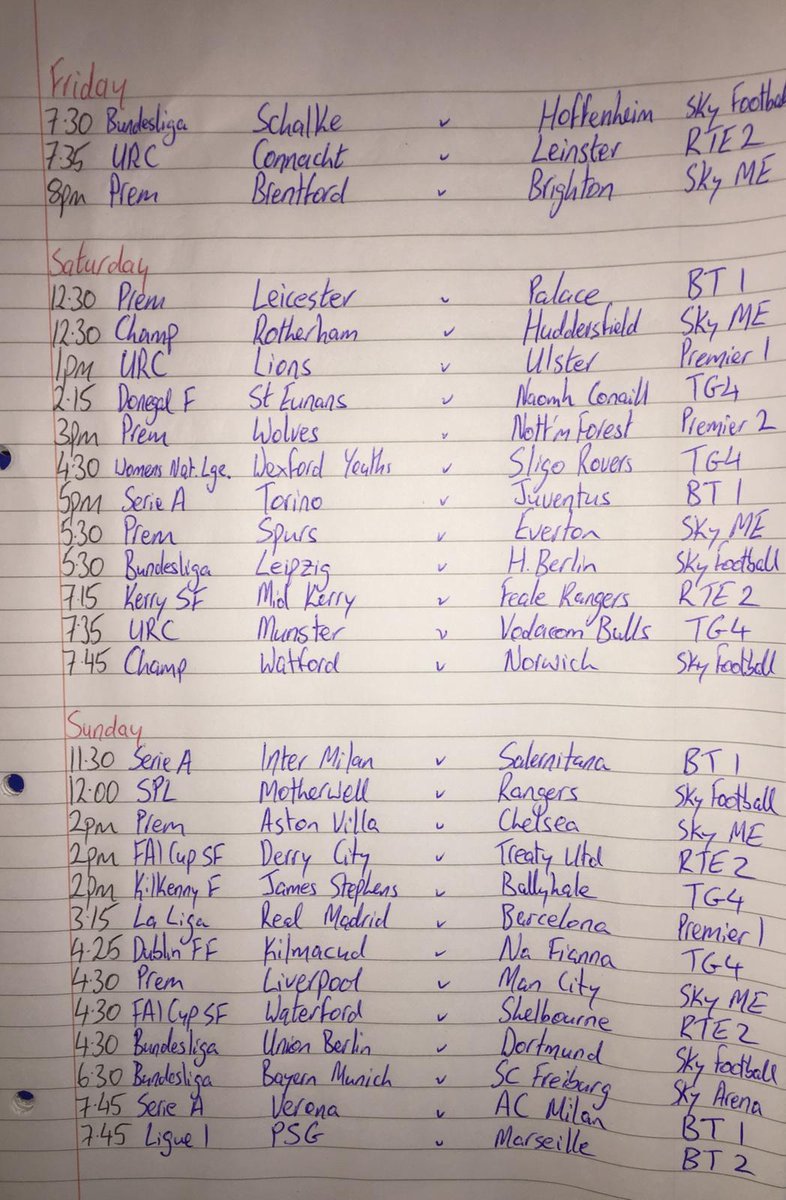 Friday
7.30 Bundesliga Schalke v Hoffenheim Sky Football
7.35 URC Connacht v Leinster RTE 2
8pm Prem Brentford v Brighton Sky ME
Saturday
12.30 Prem Leicester v Palace BT 1
12.30 Champ Rotherham v Huddersfield Sky ME
1pm URC Lions v Ulster Premier 1
2.15 Donegal F St Eunans v Naomh Conaill TG4
3pm Prem Wolves v Nott'm Forest Premier 2
4.30 Womens Nat. Lge. Wexford Youths v Sligo Rovers TG4
5pm Serie A Torino v Juventus BT 1
5.30 Prem Spurs v Everton Sky ME
5.30 Bundesliga Leipzig v H. Berlin Sky Football
7.15 Kerry SF Mid Kerry v Feale Rangers RTE 2
7.35 URC Munster v Vodacom Bulls TG4
7.45 Champ Watford v Norwich Sky Football
Sunday
11.30 Serie A Inter Milan v Salernitana BT 1
12.00 SPL Motherwell v Rangers Sky Football
2pm Prem Aston Villa v Chelsea Sky ME
2pm FAI Cup SF Derry City v Treaty Utd RTE 2
2pm Kilkenny F James Stephens v Ballyhale TG4
3.15 La Liga Real Madrid v Barcelona Premier 1
4.25 Dublin FF Kilmacud v Na Fianna TG4
4.30 Prem Liverpool v Man City Sky ME
4.30 FAI Cup SF Waterford v Shelbourne RTE 2
4.30 Bundesliga Union Berlin v Dortmund Sky Football
6.30 Bundesliga Bayern Munich v SC Freiburg Sky Arena
7.45 Serie A Verona v AC Milan BT 1
7.45 Ligue 1 PSG v Marseille BT 2